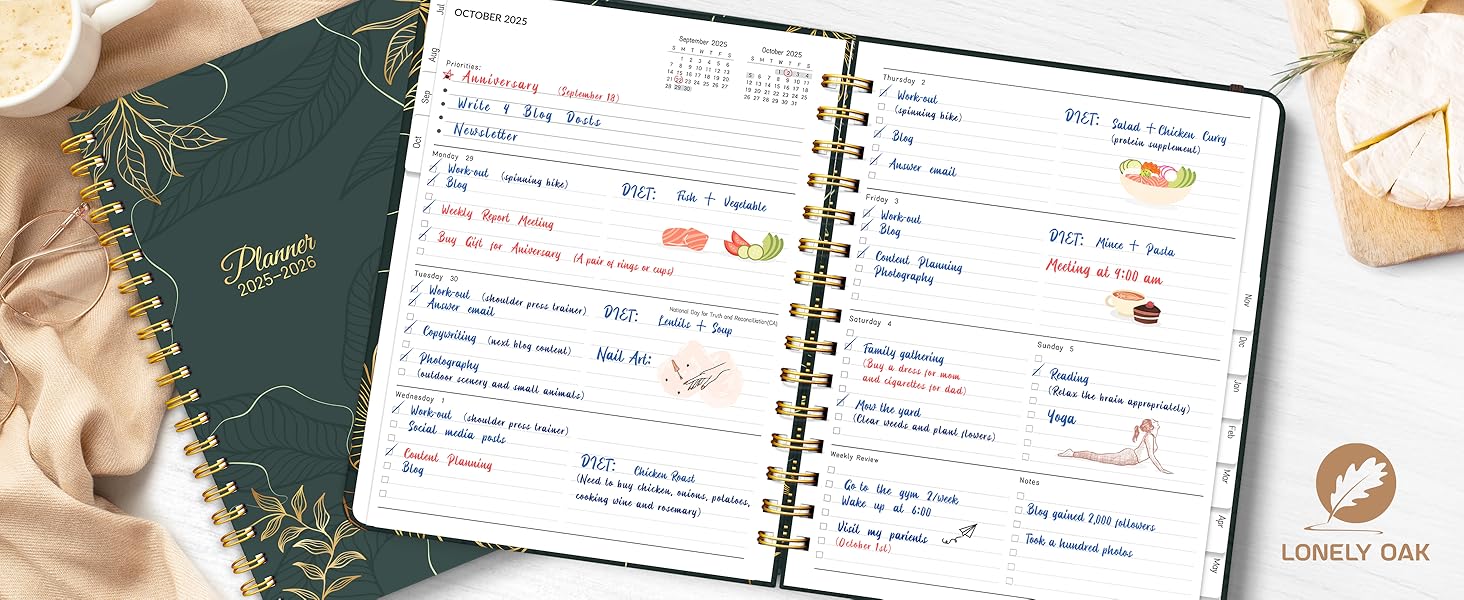 Planner
2025-2026
Jul
Aug
Sep
Oct
OCTOBER 2025
September 2025
S M T W T F S
1 2 3 4 5 6
7 8 9 10 11 12 13
14 15 16 17 18 19 20
21 22 23 24 25 26 27
28 29 30
October 2025
S M T W T F S
1 2 3 4
5 6 7 8 9 10 11
12 13 14 15 16 17 18
19 20 21 22 23 24 25
26 27 28 29 30 31
Priorities:
Anniversary (September 18)
Write 4 Blog Dosts
Newsletter
Monday 29
Work-out (spinning bike)
Blog
Weekly Report Meeting
Buy Gift for Aniversary (A pair of rings or cups)
DIET: Fish + Vegetable
Tuesday 30
National Day for Truth and Reconciliation(CA)
Work-out (shoulder press trainer)
Answer email
Copywriting (next blog content)
Photography
(outdoor scenery and small animals)
DIET: Lentils + Soup
Nail Art:
Wednesday 1
Work-out (shoulder press trainer)
Social media posts
Content Planning
Blog
DIET: Chicken Roast
(Need to buy chicken, onions, potatoes,
cooking wine and rosemary)
Thursday 2
Work-out
(spinning bike)
Blog
Answer email
DIET: Salad + Chicken Curry
(protein supplement)
Friday 3
Work-out
Blog
Content Planning
Photography
DIET: Mince + Pasta
Meeting at 9:00 am
Saturday 4
Family gathering
(Buy a dress for mom
and cigarettes for dad)
Mow the yard
(Clear weeds and plant flowers)
Sunday 5
Reading
(Relax the brain appropriately)
Yoga
Weekly Review
Go to the gym 2/week
Wake up at 6:00
Visit my parients
(October 1st)
Notes
Blog gained 2,000 followers
Took a hundred photos
Nov
Dec
Jan
Feb
Mar
Apr
May
LONELY OAK